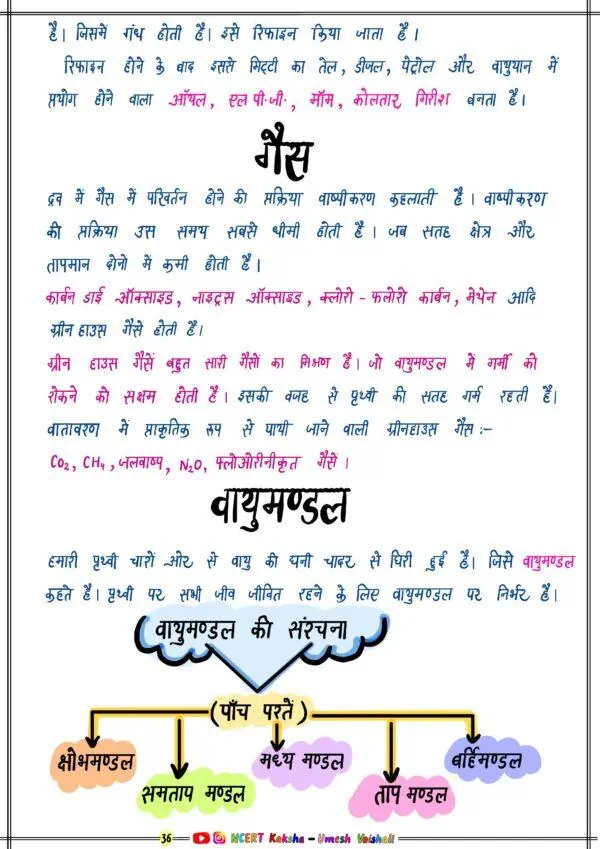 है। जिसमें गंध होती है। इसे रिफाइन किया जाता है।
रिफाइन होने के बाद इससे मिट्टी का तेल, डीजल, पेट्रोल और वायुयान में
प्रयोग होने वाला ऑयल, एल पी.जी., मॉम, कोलतार, गिरीश बनता है।
गैस
द्रव में गैस में परिवर्तन होने की प्रक्रिया वाष्पीकरण कहलाती है। वाष्पीकरण
की प्रक्रिया उस समय सबसे धीमी होती है। जब सतह क्षेत्र और
तापमान दोनो में कमी होती है।
कार्बन डाई ऑक्साइड, नाइट्रस ऑक्साइड, क्लोरो-फलोरो कार्बन, मेथेन आदि
ग्रीन हाउस गैसें होती है।
ग्रीन हाउस गैसें बहुत सारी गैसों का मिश्रण है। जो वायुमण्डल में गर्मी को
रोकने को सक्षम होती है। इसकी वजह से पृथ्वी की सतह गर्म रहती है।
वातावरण में प्राकृतिक रूप से पायी जाने वाली ग्रीनहाउस गैस:-
CO2, CH4, जलवाष्प, N2O, फ्लोओरीनीकृत गैसें।
वायुमण्डल
हमारी पृथ्वी चारों ओर से वायु की घनी चादर से घिरी हुई है। जिसे वायुमण्डल
कहते है। पृथ्वी पर सभी जीव जीवित रहने के लिए वायुमण्डल पर निर्भर है।
वायुमण्डल की संरचना
(पाँच परतें)
क्षोभमण्डल
समताप मण्डल
मध्य मण्डल
ताप मण्डल
बर्हिमण्डल
36 NCERT Kaksha - Umesh Vaishali